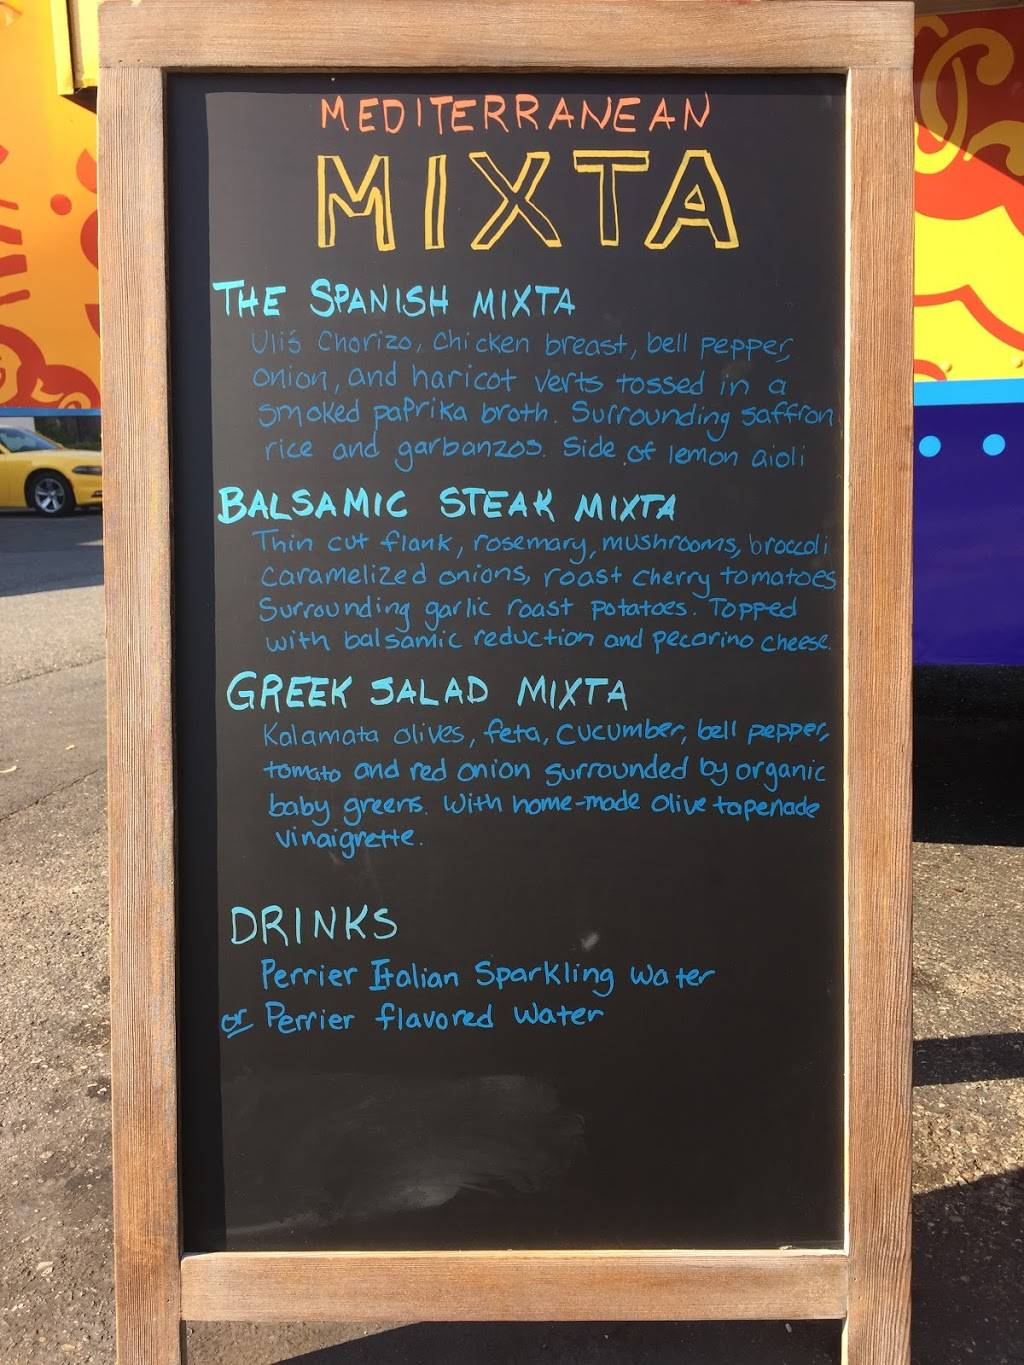 MEDITERRANEAN
MIXTA
THE SPANISH MIXTA
Uli's Chorizo, Chicken breast, bell pepper,
onion, and haricot verts tossed in a
smoked paprika broth. Surrounding saffron
rice and garbanzos. Side of lemon aioli
BALSAMIC STEAK MIXTA
Thin cut flank, rosemary, mushrooms, broccoli
Caramelized onions, roast cherry tomatoes
Surrounding garlic roast potatoes. Topped
with balsamic reduction and pecorino cheese.
GREEK SALAD MIXTA
Kalamata olives, feta, cucumber, bell pepper,
tomato and red onion surrounded by organic
baby greens. With home-made olive tapenade
vinaigrette.
DRINKS
Perrier Italian Sparkling Water
or Perrier flavored Water